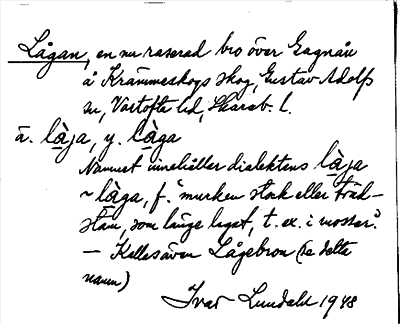 Lågan, en nu raserad bro över Gagnån
å Krämmeskogs skog, Gustav Adolfs
sn, Vartofta hd, Skarab. l.
ä. làja, y. làga
Namnet innehåller dialektens làja
~ làga, f. "murken stock eller träd-
stam, som länge legat, t. ex. i mossar."
— Kallas även Lågabron (se detta
namn)
Ivar Lundahl 1948